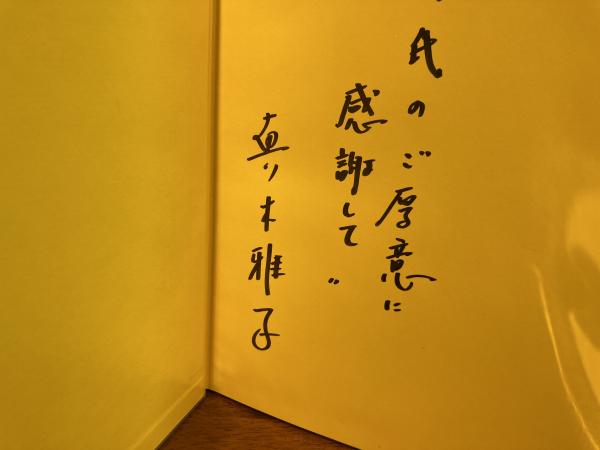 氏のご厚意に
感謝して〃
真木雅子